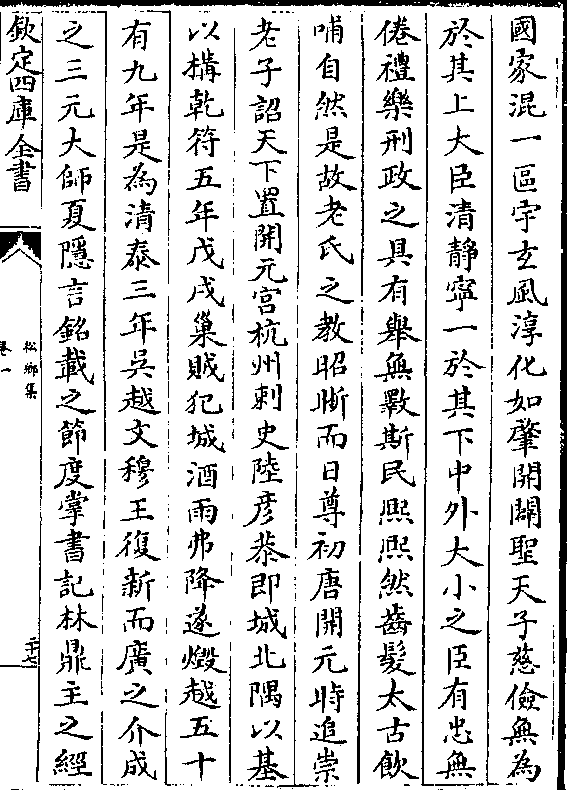 國家混一區宇玄風淳化如肇開闢聖天子慈儉無為
於其上大臣清靜寧一於其下中外大小之臣有忠無
倦禮樂刑政之具有舉無斁斯民熙熙然齒髮太古飲
哺自然是故老氏之教昭晰而日尊初唐開元時追崇
老子詔天下置開元宫杭州刺史陸彦恭即城北隅以基
以搆乾符五年戊戌巢賊犯城酒雨弗降遂燬越五十
有九年是為清泰三年吳越文穆王復新而廣之介成
之三元大師夏隱言銘載之節度掌書記林鼎主之經
欽定四庫全書
松鄉集
卷一
二十七